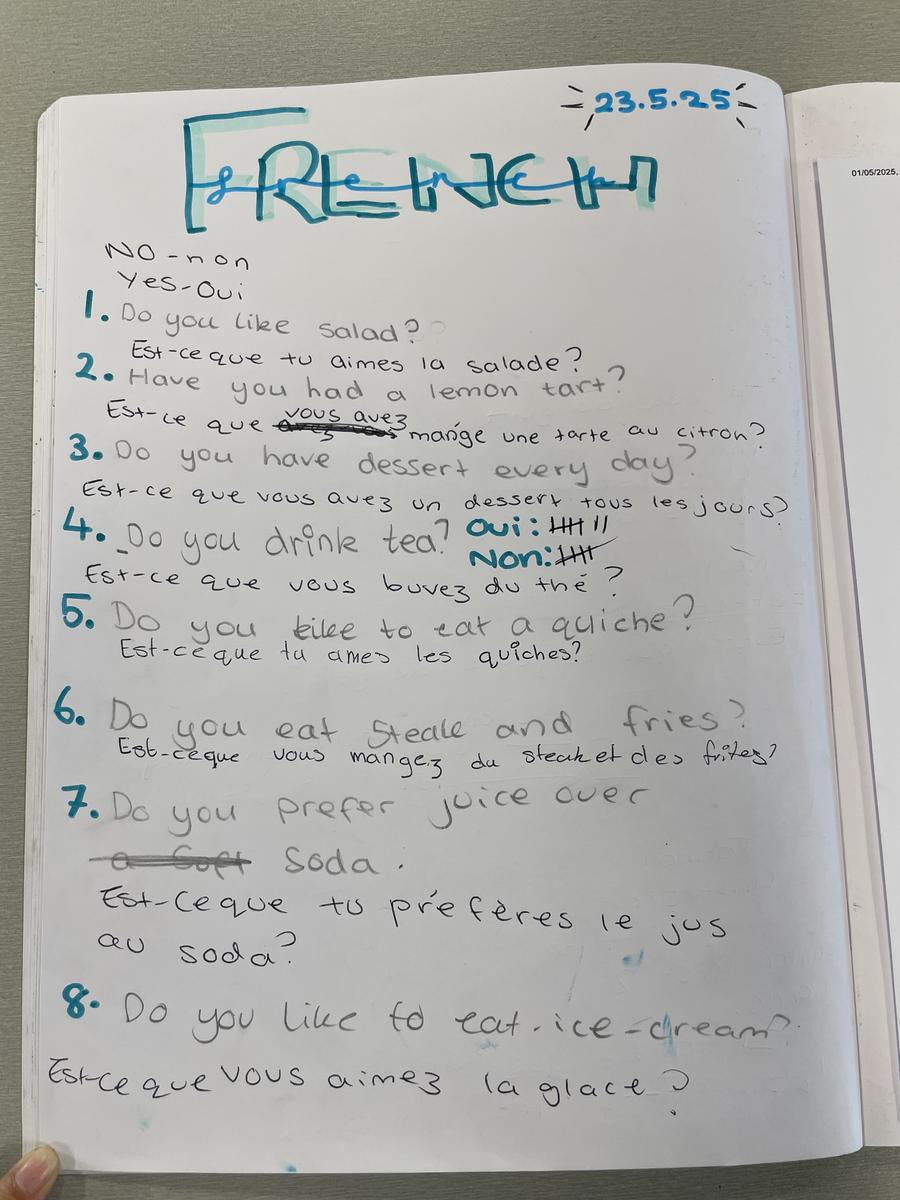 23.5.25
FRENCH
french
01/05/2025,
NO - non
Yes - Oui
1. Do you like salad?
Est-ce que tu aimes la salade?
2. Have you had a lemon tart?
Est-ce que vous avez mangé une tarte au citron?
3. Do you have dessert every day?
Est-ce que vous avez un dessert tous les jours?
4. Do you drink tea? Oui: 卌 ||
Non: 卌
Est-ce que vous buvez du thé?
5. Do you like to eat a quiche?
Est-ce que tu ames les quiches?
6. Do you eat Steak and fries?
Est-ce que vous mangez du steak et des frites?
7. Do you prefer juice over
a Soft Soda.
Est-ce que tu préfères le jus
au soda?
8. Do you like to eat. ice-cream?
Est-ce que vous aimez la glace?